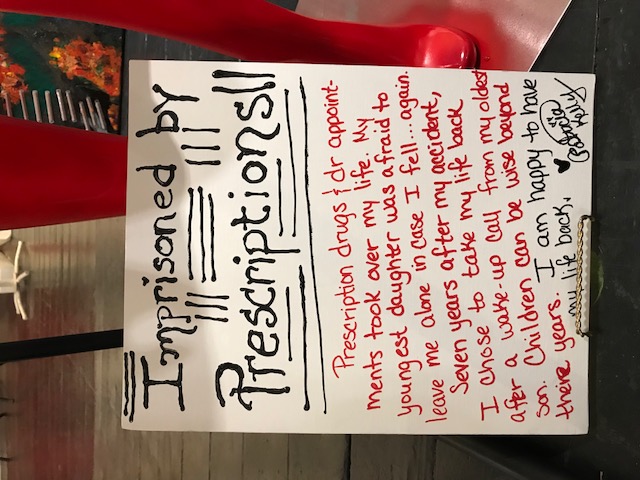 Imprisoned by
Prescriptions!!
Prescription drugs & dr appoint-
ments took over my life. My
youngest daughter was afraid to
leave me alone in case I fell....again.
Seven years after my accident,
I chose to take my life back
after a wake-up call from my oldest
son. Children can be wise beyond
there years. I am happy to have
my life back.